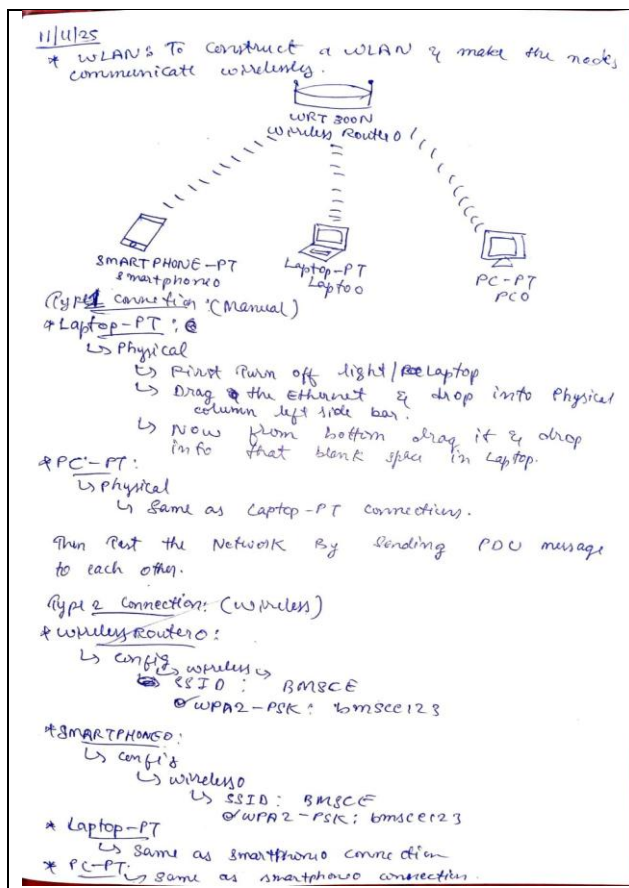 11/11/25
* WLANS To Construct a WLAN & make the nodes
communicate wirelessly.
WRT 300N
Wireless Router0
SMARTPHONE-PT
Smartphone0
Laptop-PT
Laptop0
PC-PT
PC0
Type 1 connection: (Manual)
* Laptop-PT:
↳ Physical
↳ First Turn off light/Laptop
↳ Drag the Ethernet & drop into Physical
column left side bar.
↳ Now from bottom drag it & drop
into that blank space in Laptop.
* PC-PT:
↳ Physical
↳ Same as Laptop-PT connections.
Then Test the Network By Sending PDU message
to each other.
Type 2 Connection: (Wireless)
* Wireless Router0:
↳ Config
↳ wireless
SSID: BMSCE
WPA2-PSK: bmsce123
* SMARTPHONE0:
↳ config
↳ wireless0
↳ SSID: BMSCE
WPA2-PSK: bmsce123
* Laptop-PT
↳ Same as smartphone0 connection
* PC-PT:
↳ Same as smartphone0 connection.